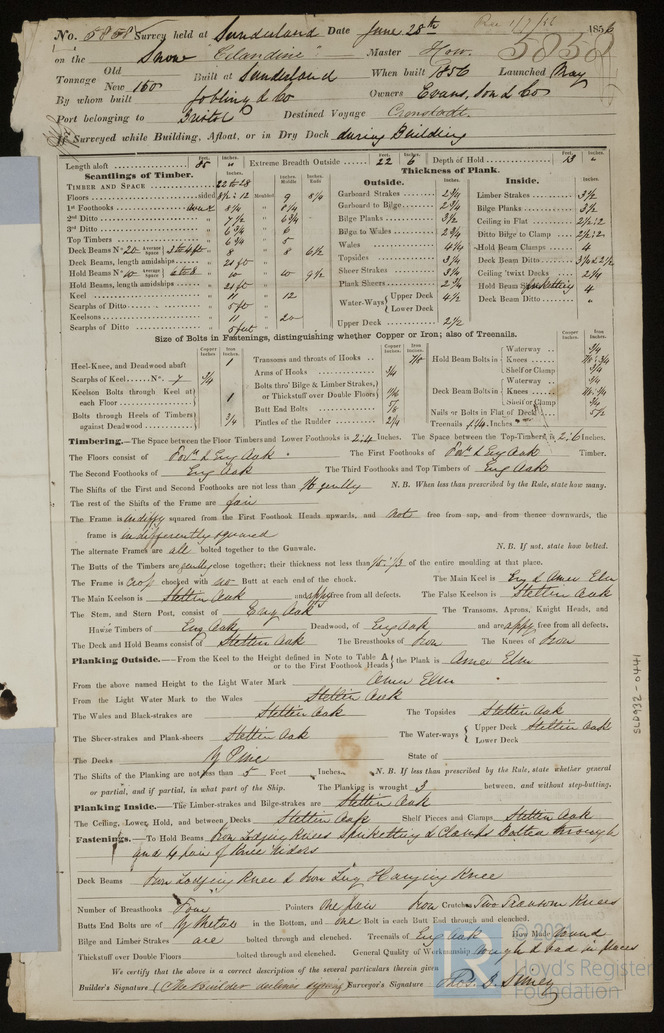 No. 5858 Survey held at Sunderland Date June 28th 1856
on the Snow "Clandine" Master How.
Tonnage Old New 160 Built at Sunderland When built 1856 Launched May
By whom built Jobling & Co Owners Evans, Son & Co
Port belonging to Bristol Destined Voyage Cronstadt
If Surveyed while Building, Afloat, or in Dry Dock during Building
5858
Length aloft Feet. 85 Inches. Extreme Breadth Outside Feet. 22 Inches. 6 Depth of Hold Feet. 13 Inches.
Scantlings of Timber.
TIMBER AND SPACE 22 to 28
Floors sided 8½ : 12 Moulded 9
1st Foothooks
2nd Ditto 7½ 6¾
3rd Ditto 6¾ 6
Top Timbers 6¼ 5
Deck Beams No. 20 Average Space 3 to 4 ft 8 8 6½
Deck Beams, length amidships 21 ft
Hold Beams No. 10 Average Space 10 10 9½
Hold Beams, length amidships 21 ft
Keel 11 12
Scarphs of Ditto 5 ft
Keelsons 11 20
Scarphs of Ditto 5 feet
Thickness of Plank.
Outside.
Garboard Strakes 2¾
Garboard to Bilge 2¾
Bilge Planks 3½
Bilge to Wales 2¾
Wales 4¼
Topsides 3¼
Sheer Strakes 3¼
Plank Sheers 2¾
Water-Ways Upper Deck 4½
Lower Deck
Upper Deck 2½
Inside.
Limber Strakes 3½
Bilge Planks 3½
Ceiling in Flat 2½ : 2
Ditto Bilge to Clamp 2½ : 2
Hold Beam Clamps 4
Deck Beam Ditto 3¼ & 2½
Ceiling 'twixt Decks 2¼
Hold Beam Spirketting 4
Deck Beam Ditto
Size of Bolts in Fastenings, distinguishing whether Copper or Iron; also of Treenails.
Copper Inches. Iron Inches.
Heel-Knee, and Deadwood abaft 1
Scarphs of Keel No. 7 ¾
Keelson Bolts through Keel at each Floor 1
Bolts through Heels of Timbers against Deadwood ¾
Transoms and throats of Hooks 7/8
Arms of Hooks ¾
Bolts thro' Bilge & Limber Strakes, or Thickstuff over Double Floors
Butt End Bolts 5/8
Pintles of the Rudder 2¼
Hold Beam Bolts in Waterway ¾
Knees
Shelf or Clamp ¾
Deck Beam Bolts in Waterway ¾
Knees
Shelf or Clamp ¾
Nails or Bolts in Flat of Deck 5½
Treenails 1¼ Inches
Timbering.—The Space between the Floor Timbers and Lower Foothooks is 2:4 Inches. The Space between the Top-Timbers is 2:6 Inches.
The Floors consist of For'n & Eng Oak The First Foothooks of For'n & Eng Oak Timber.
The Second Foothooks of Eng Oak The Third Foothooks and Top Timbers of Eng Oak
The Shifts of the First and Second Foothooks are not less than N.B. When less than prescribed by the Rule, state how many.
The rest of the Shifts of the Frame are fair
The Frame is indiffy squared from the First Foothook Heads upwards, and not free from sap, and from thence downwards, the
frame is indifferently squared
The alternate Frames are all bolted together to the Gunwale. N.B. If not, state how bolted.
The Butts of the Timbers are genlly close together; their thickness not less than 1/3 of the entire moulding at that place.
The Frame is chocked with no Butt at each end of the chock. The Main Keel is Eng & Amer Elm
The Main Keelson is Stettin Oak and appy free from all defects. The False Keelson is Stettin Oak
The Stem, and Stern Post, consist of Eng Oak The Transoms, Aprons, Knight Heads, and
Hawse Timbers of Eng Oak Deadwood, of Eng Oak and are appy free from all defects.
The Deck and Hold Beams consist of Stettin Oak The Breasthooks of Iron The Knees of Iron
Planking Outside.—From the Keel to the Height defined in Note to Table A or to the First Foothook Heads the Plank is Amer Elm
From the above named Height to the Light Water Mark Amer Elm
From the Light Water Mark to the Wales Stettin Oak
The Wales and Black-strakes are Stettin Oak The Topsides Stettin Oak
The Sheer-strakes and Plank-sheers Stettin Oak The Water-ways Upper Deck Stettin Oak
Lower Deck
The Decks Y Pine State of
The Shifts of the Planking are not less than 5 Feet Inches. N.B. If less than prescribed by the Rule, state whether general
or partial, and if partial, in what part of the Ship. The Planking is wrought 3 between, and without step-butting.
Planking Inside.—The Limber-strakes and Bilge-strakes are Stettin Oak
The Ceiling, Lower Hold, and between Decks Stettin Oak Shelf Pieces and Clamps Stettin Oak
Fastenings.—To Hold Beams Iron Lodging Knees Spirketting & Clamps bolted through
and 4 pair of Knee Riders
Deck Beams Iron Lodging Knee & Iron Hanging Knee
Number of Breasthooks Four Pointers One pair Iron Crutches Two Transom Knees
Butts End Bolts are of Y Metal in the Bottom, and one Bolt is each Butt End through and clenched.
Bilge and Limber Strakes are bolted through and clenched. Treenails of Eng Oak How Made Round
Thickstuff over Double Floors bolted through and clenched. General Quality of Workmanship rough & bad in places
We certify that the above is a correct description of the several particulars therein given
Builder's Signature (The Builder declines signing) Surveyor's Signature
SLD932-0441
© 2021
Lloyd's Register
Foundation